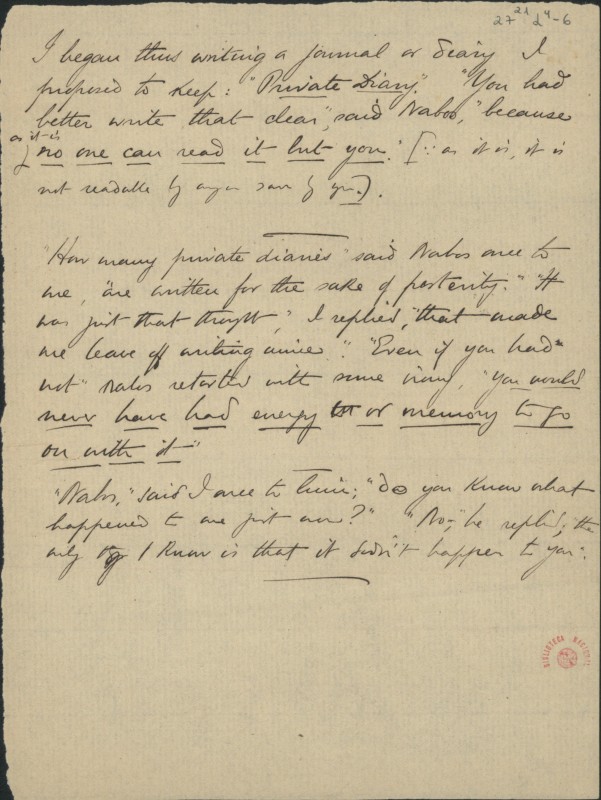 27 21 2 4-6
I began thus writing a journal or diary I
proposed to keep: "Private Diary". "You had
better write that clear", said Nabos, "because
as it is
no one can read it but you." [∵ as it is, it is
not readable by anyone save by you.].
"How many private diaries" said Nabos once to
me, "are written for the sake of posterity." "It
was just that thought," I replied, "that made
me leave off writing mine." "Even if you had
not" Nabos retorted with some irony, "you would
never have had energy or memory to go
on with it"
"Nabos," said I once to him; "do you know what
happened to me just now?" "No", he replied; "the
only I know is that it didn't happen to you".
BIBLIOTECA NACIONAL